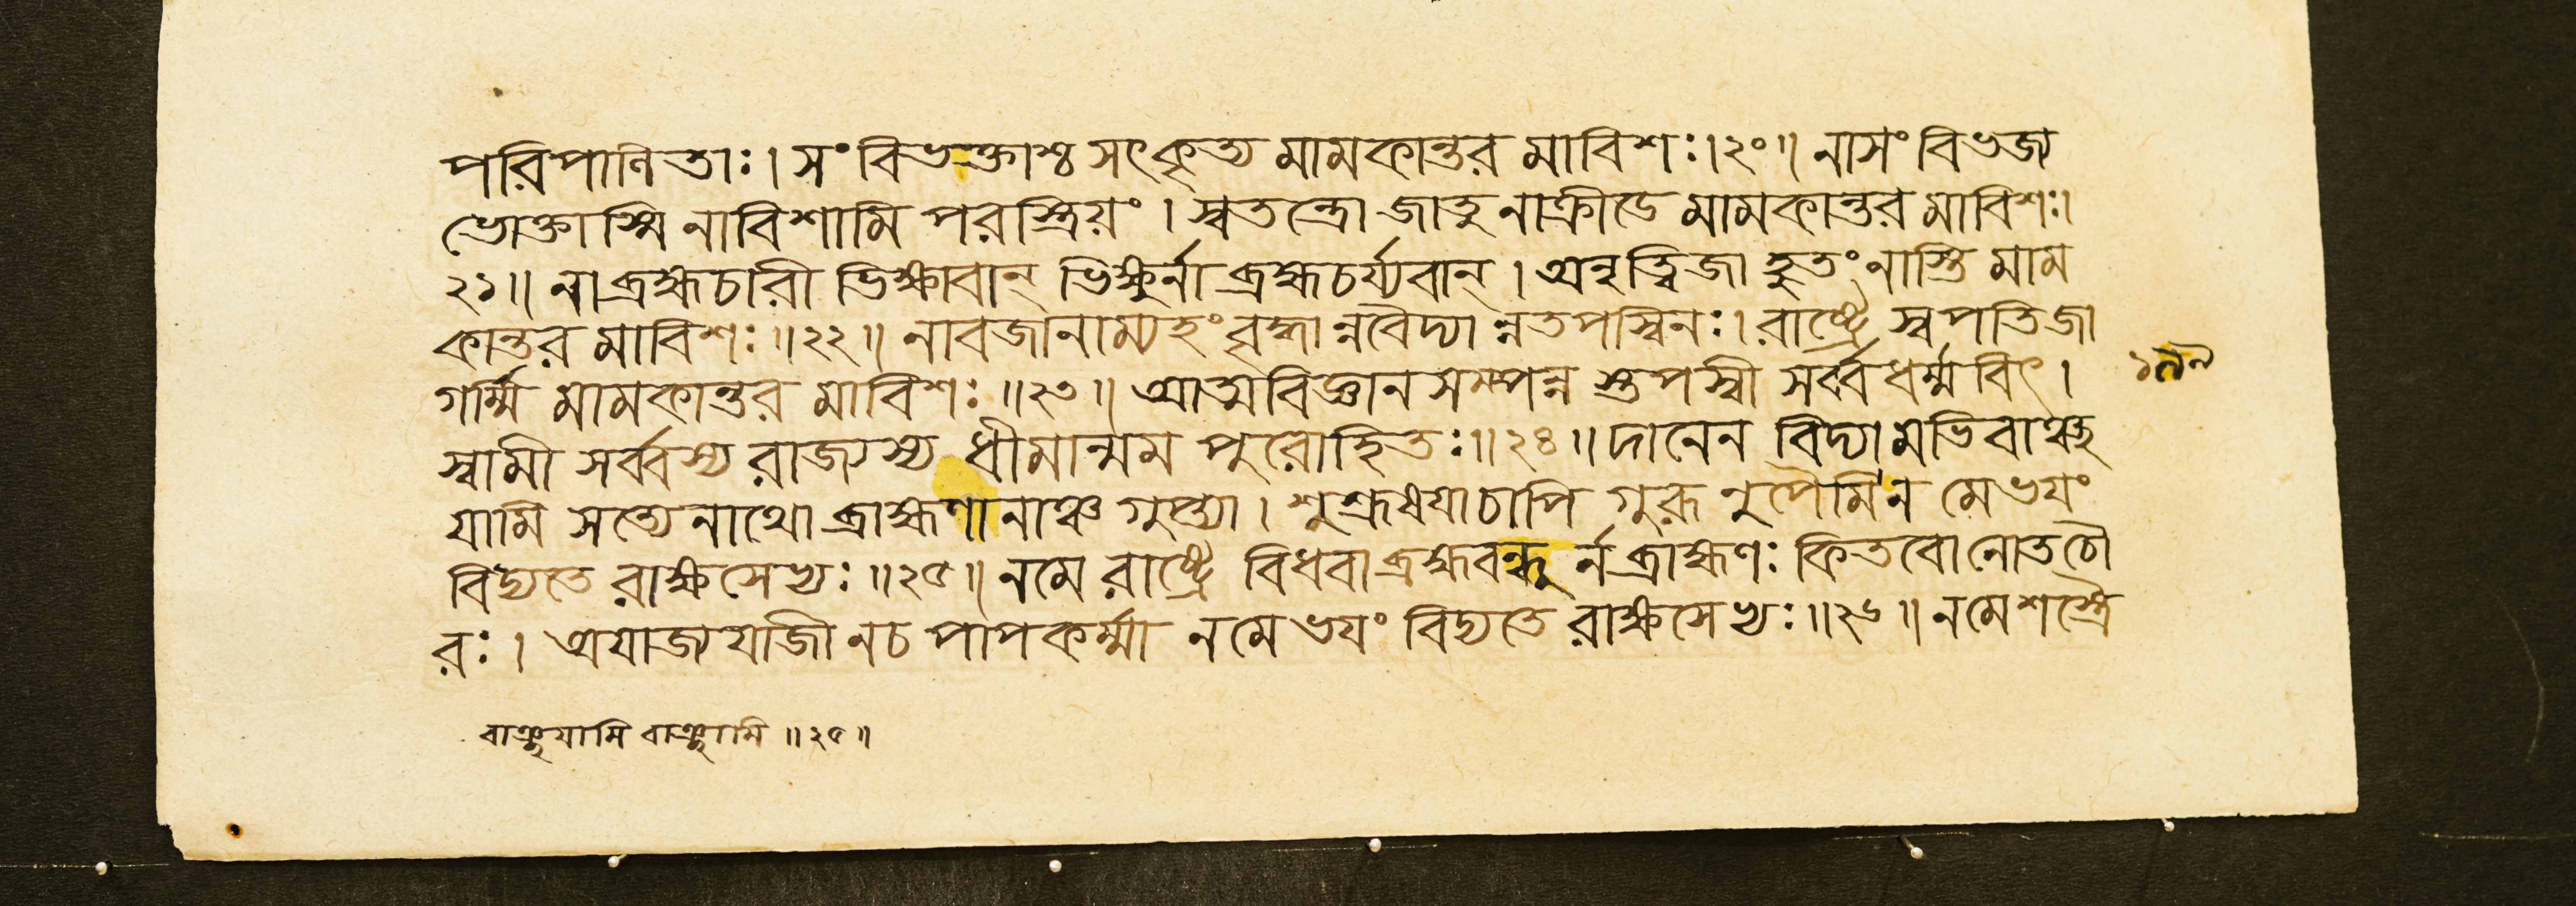 পরিপালিতাঃ। সংবিভক্তাশ্চ সৎকৃত্য মামকান্তর মাবিশঃ।২০॥ নাসংবিভজ্য
ভোক্তাস্মি নাবিশামি পরস্ত্রিয়ং। স্বতন্ত্রো জাতু নাক্রীডে মামকান্তর মাবিশঃ।
২১॥ নাব্রহ্মচারী ভিক্ষাবান্ ভিক্ষুর্নাব্রহ্মচর্য্যবান্। অনৃত্বিজা হুতং নাস্তি মাম
কান্তর মাবিশঃ॥২২॥ নাবজানাম্যহং বৃদ্ধান্নবৈদ্যান্নতপস্বিনঃ। রাষ্ট্রে স্বপতি জা
গর্ম্মি মামকান্তর মাবিশঃ॥২৩॥ আত্মবিজ্ঞান সম্পন্ন স্তপস্বী সর্ব্বধর্ম্মবিৎ।
স্বামী সর্ব্বস্য রাজ্যস্য ধীমান্মম পুরোহিতঃ॥২৪॥ দানেন বিদ্যামভিবাঞ্ছ
যামি সত্যেনাথো ব্রাহ্মণানাঞ্চ গুপ্ত্যা। শুশ্রূষযাচাপি গুরূনুপৈমি ন মেভযং
বিদ্যতে রাক্ষসেভ্যঃ॥২৫॥ নমে রাষ্ট্রে বিধবা ব্রহ্মবন্ধুর্ন ব্রাহ্মণঃ কিতবোনোতচৌ
রঃ। অযাজ্যযাজী নচ পাপকর্ম্মা নমে ভযং বিদ্যতে রাক্ষসেভ্যঃ॥২৬॥ নমে শস্ত্রৈ
বাঞ্ছযামি বাঞ্ছামি ॥২৫॥